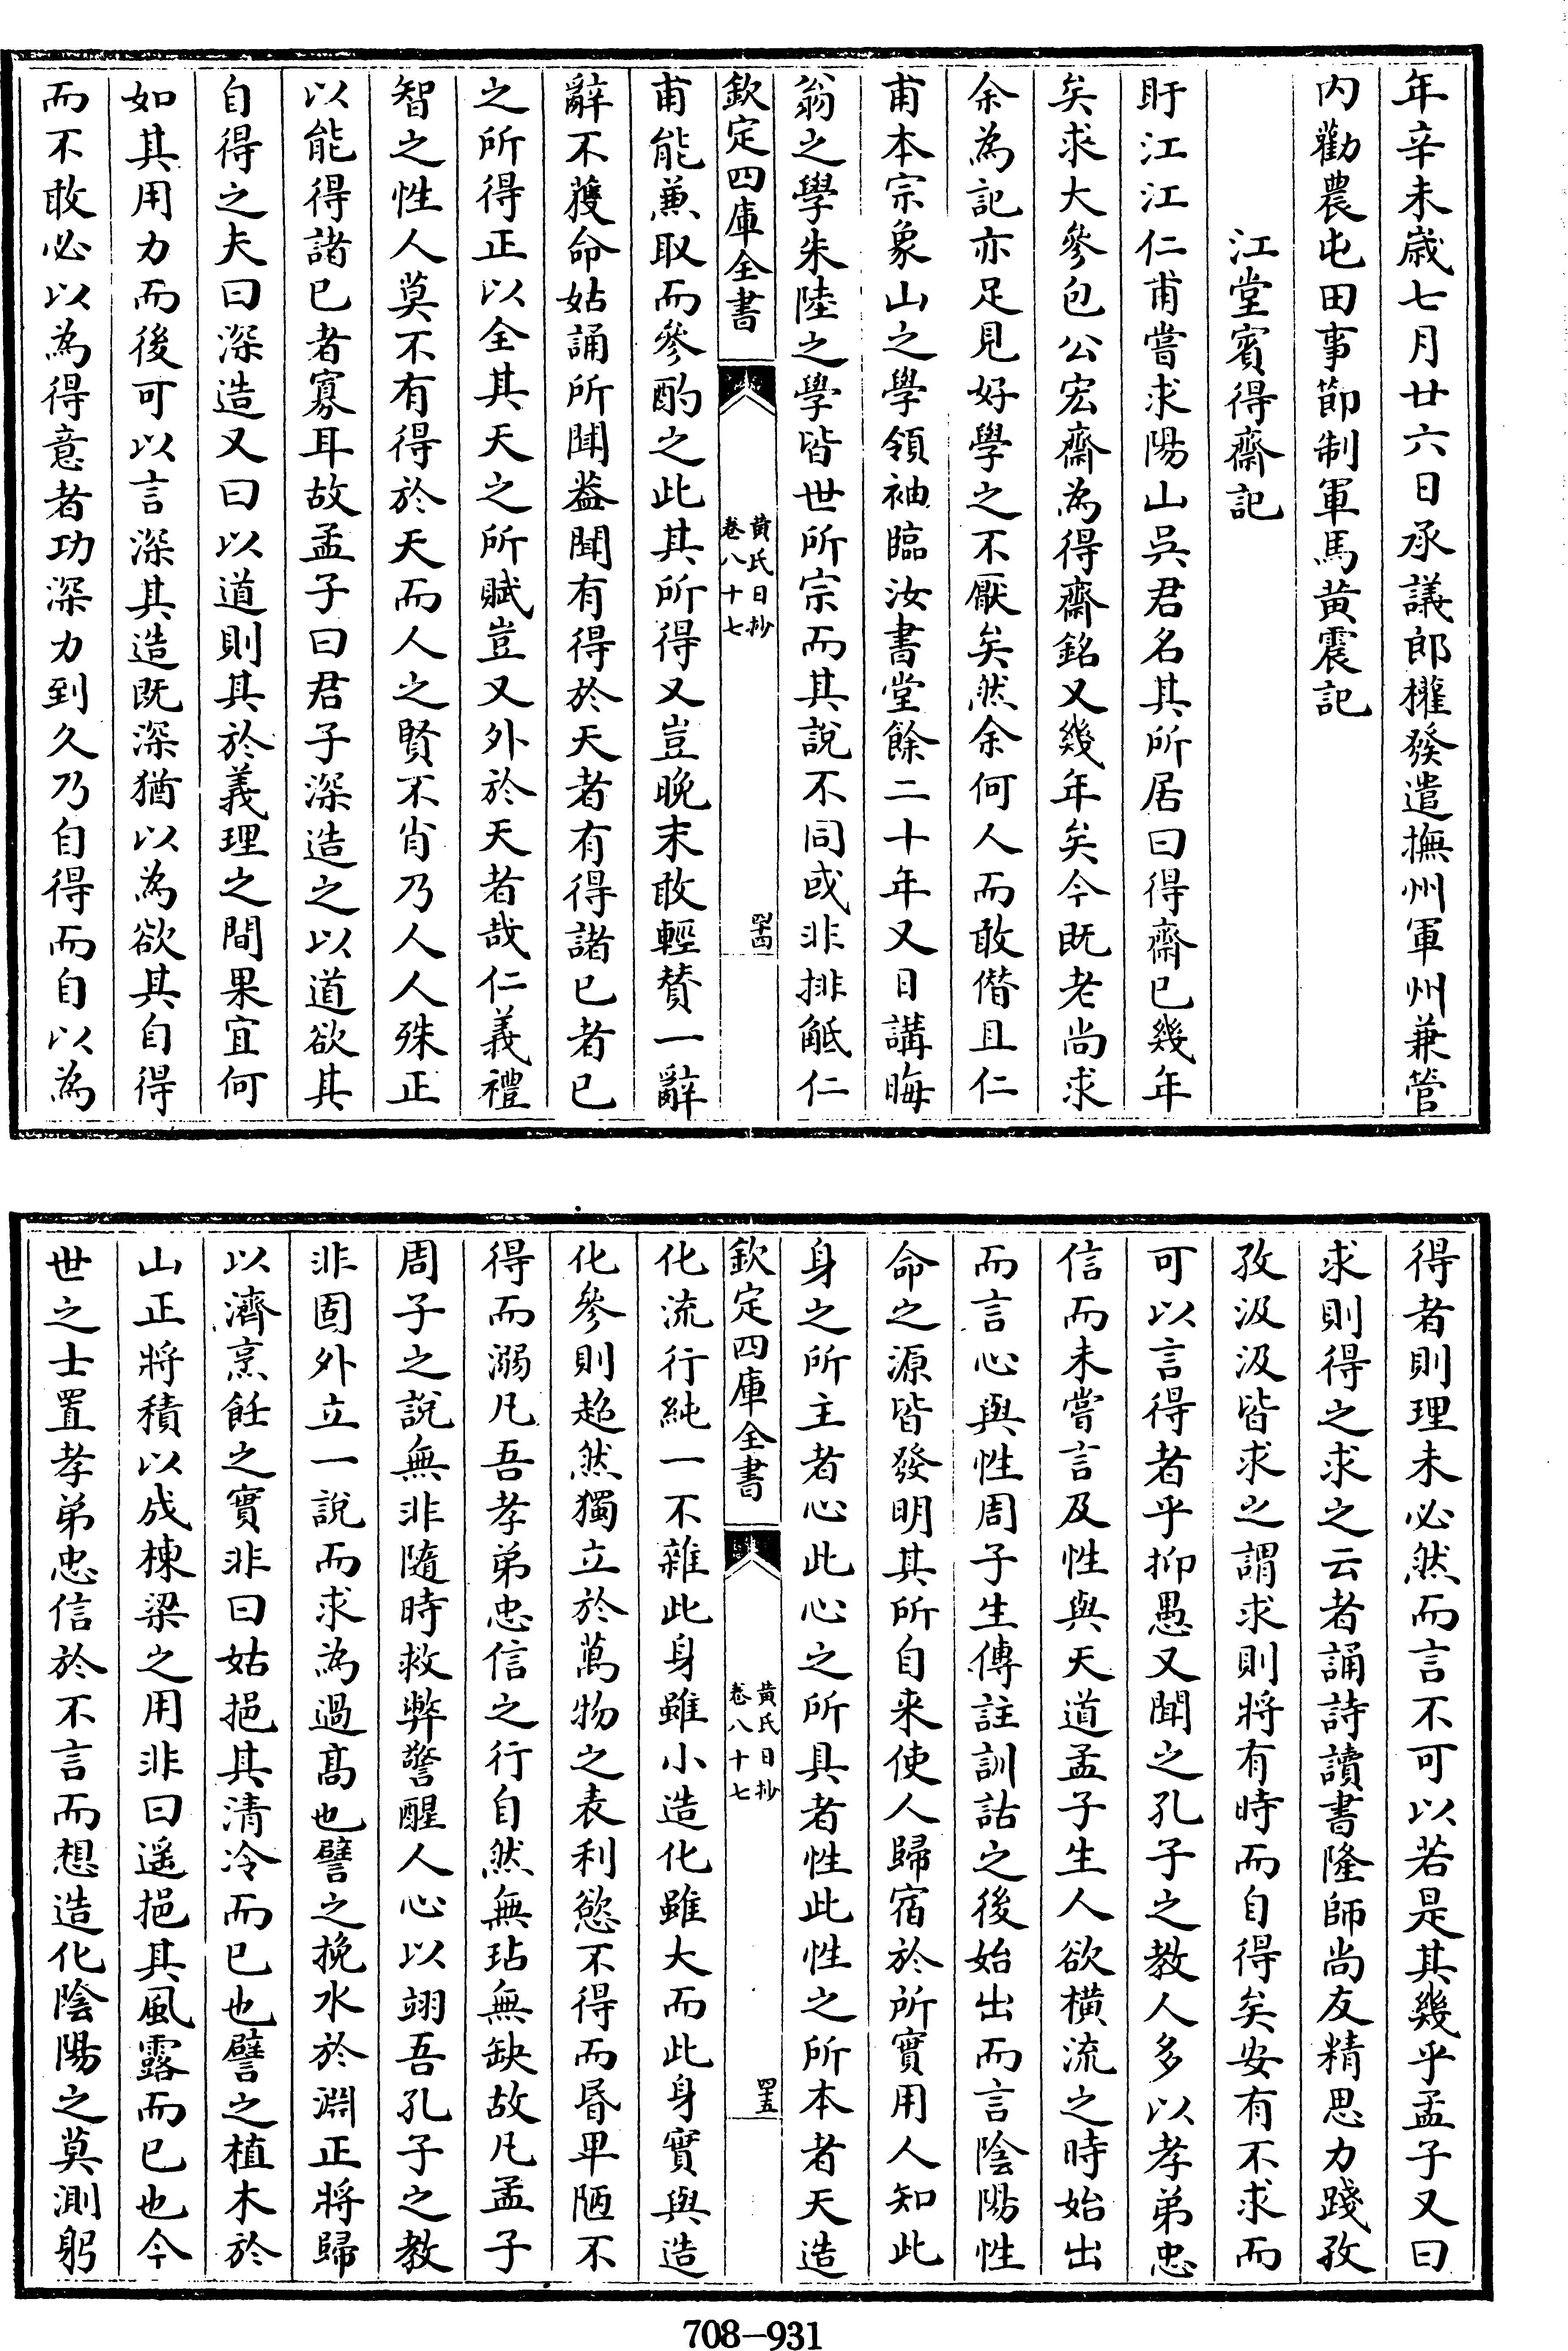 年辛未歲七月廿六日承議郎權發遣撫州軍州兼管
内勸農屯田事節制軍馬黄震記
江堂賓得齋記
盱江江仁甫嘗求陽山吳君名其所居曰得齋已幾年
矣求大參包公宏齋為得齋銘又幾年矣今既老尚求
余為記亦足見好學之不厭矣然余何人而敢僭且仁
甫本宗象山之學領袖臨汝書堂餘二十年又日講晦
翁之學朱陸之學皆世所宗而其說不同或非排觝仁
欽定四庫全書
黄氏日抄
卷八十七
四十四
甫能兼取而參酌之此其所得又豈晚末敢輕賛一辭
辭不獲命姑誦所聞葢聞有得於天者有得諸已者已
之所得正以全其天之所賦豈又外於天者哉仁義禮
智之性人莫不有得於天而人之賢不肖乃人人殊正
以能得諸已者寡耳故孟子曰君子深造之以道欲其
自得之夫曰深造又曰以道則其於義理之間果宜何
如其用力而後可以言深其造既深猶以為欲其自得
而不敢必以為得意者功深力到久乃自得而自以為
得者則理未必然而言不可以若是其幾乎孟子又曰
求則得之求之云者誦詩讀書隆師尚友精思力踐孜
孜汲汲皆求之謂求則將有時而自得矣安有不求而
可以言得者乎抑愚又聞之孔子之教人多以孝弟忠
信而未嘗言及性與天道孟子生人欲橫流之時始出
而言心與性周子生傳註訓詁之後始出而言陰陽性
命之源皆發明其所自来使人歸宿於所實用人知此
身之所主者心此心之所具者性此性之所本者天造
欽定四庫全書
黄氏日抄
卷八十七
四十五
化流行純一不雜此身雖小造化雖大而此身實與造
化參則超然獨立於萬物之表利慾不得而昬卑陋不
得而溺凡吾孝弟忠信之行自然無玷無缺故凡孟子
周子之說無非隨時救弊警醒人心以翊吾孔子之教
非固外立一說而求為過髙也譬之挽水於淵正將歸
以濟烹飪之實非曰姑挹其清冷而已也譬之植木於
山正將積以成棟梁之用非曰遥挹其風露而已也今
世之士置孝弟忠信於不言而想造化陰陽之莫測躬
708-931